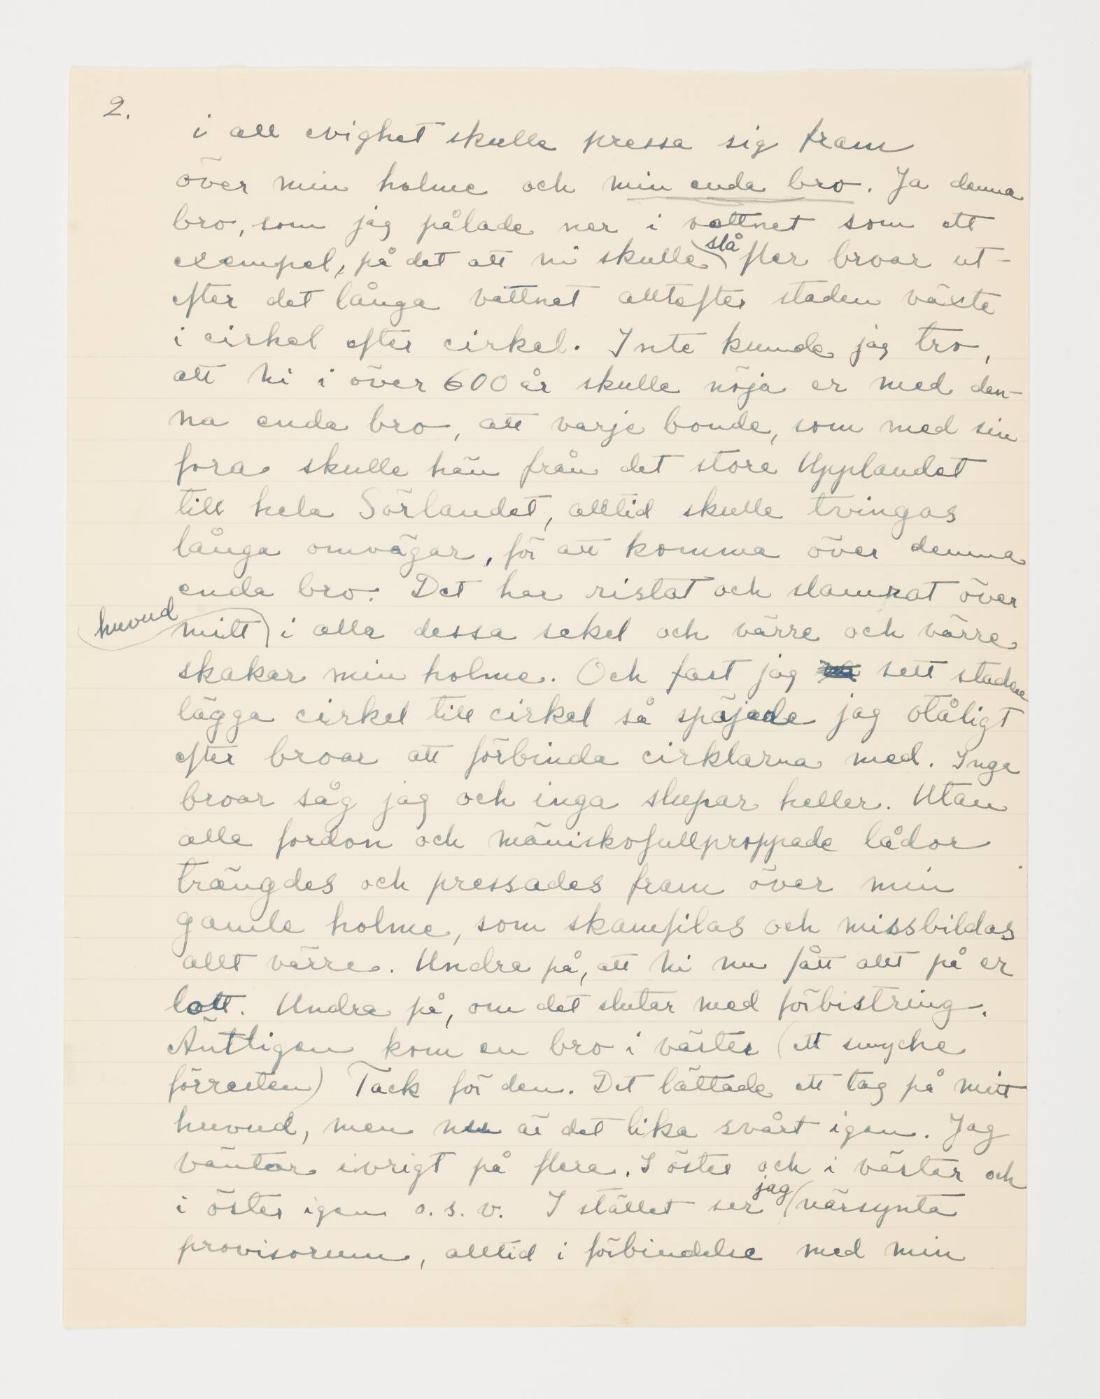 2.
i all evighet skulle pressa sig fram
över min holme och min enda bro. Ja denna
bro, som jag pålade ner i vattnet som ett
exempel, på det att ni skulle slå fler broar ut-
efter det långa vattnet alltefter staden växte
i cirkel efter cirkel. Inte kunde jag tro,
att ni i över 600 år skulle nöja er med den-
na enda bro, att varje bonde, som med sin
fora skulle hän från det store Upplandet
till hela Sörlandet, alltid skulle tvingas
långa omvägar, för att komma över denna
enda bro. Det har ristat och slamrat över
huvud mitt i alla dessa sekel och värre och värre
skakar min holme. Och fast jag sett staden
lägga cirkel till cirkel så späjade jag otåligt
efter broar att förbinda cirklarna med. Inga
broar såg jag och inga slupar heller. Utan
alla fordon och mäniskofullproppade lådor
trängdes och pressades fram över min
gamle holme, som skamfilas och missbildas
allt värre. Undra på, att ni nu fått allt på er
lott. Undra på, om det slutar med förbistring.
Äntligen kom en bro i väster (ett smycke
förresten) Tack för den. Det lättade ett tag på mitt
huvud, men nu är det lika svårt igen. Jag
väntar ivrigt på flera. I öster och i väster och
i öster igen o.s.v. I stället ser jag närsynta
provisorium, alltid i förbindelse med min